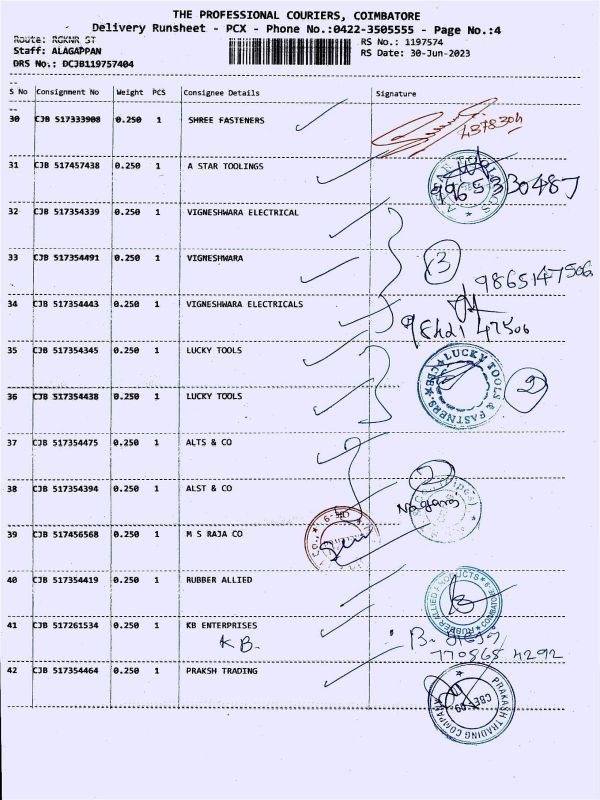 THE PROFESSIONAL COURIERS, COIMBATORE
Delivery Runsheet - PCX - Phone No.:0422-3505555 - Page No.:4
Route: RGKNR ST
RS No.: 1197574
Staff: ALAGAPPAN
RS Date: 30-Jun-2023
DRS No.: DCJB119757404
S No Consignment No Weight PCS Consignee Details Signature
30 CJB 517333908 0.250 1 SHREE FASTENERS
31 CJB 517457438 0.250 1 A STAR TOOLINGS
32 CJB 517354339 0.250 1 VIGNESHWARA ELECTRICAL
33 CJB 517354491 0.250 1 VIGNESHWARA
3
9865147506
34 CJB 517354443 0.250 1 VIGNESHWARA ELECTRICALS
98421 47506
35 CJB 517354345 0.250 1 LUCKY TOOLS
LUCKY TOOLS & FASTNERS. CBE
2
36 CJB 517354438 0.250 1 LUCKY TOOLS
37 CJB 517354475 0.250 1 ALTS & CO
2
38 CJB 517354394 0.250 1 ALST & CO
Nagaraj
39 CJB 517456568 0.250 1 M S RAJA CO
40 CJB 517354419 0.250 1 RUBBER ALLIED
RUBBER ALLIED PRODUCTS
41 CJB 517261534 0.250 1 KB ENTERPRISES
K B.
770865 4292
42 CJB 517354464 0.250 1 PRAKSH TRADING
PRAKASH TRADING COMPANY
CBE-09